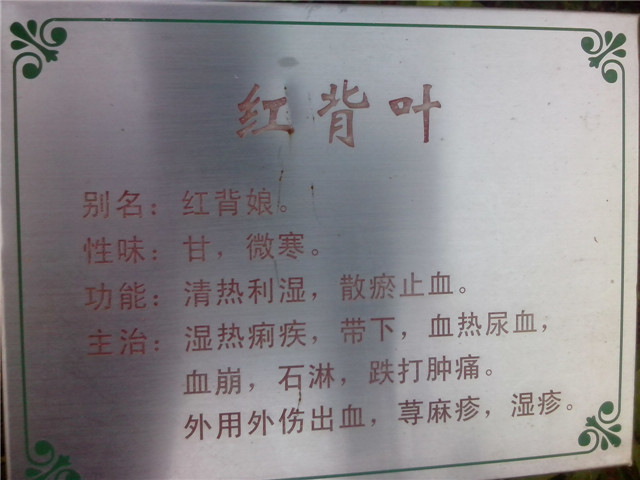 红背叶
别名：红背娘。
性味：甘，微寒。
功能：清热利湿，散瘀止血。
主治：湿热痢疾，带下，血热尿血，
血崩，石淋，跌打肿痛。
外用外伤出血，荨麻疹，湿疹。